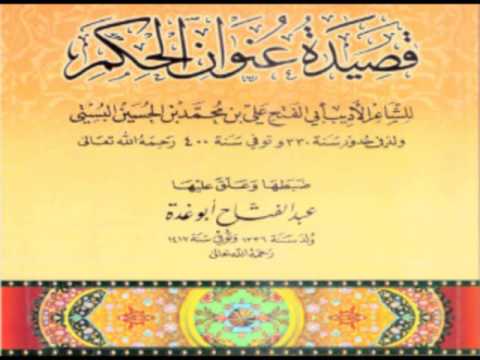 قصيدة عنوان الحكم
للشاعر الأديب أبي الفتح علي بن محمد بن الحسين البستي
ولد في حدود سنة ٣٣٠ وتوفي سنة ٤٠٠ رحمه الله تعالى
ضبطها وعلق عليها
عبد الفتاح أبو غدة
ولد سنة ١٣٣٦ وتوفي سنة ١٤١٧
رحمه الله تعالى